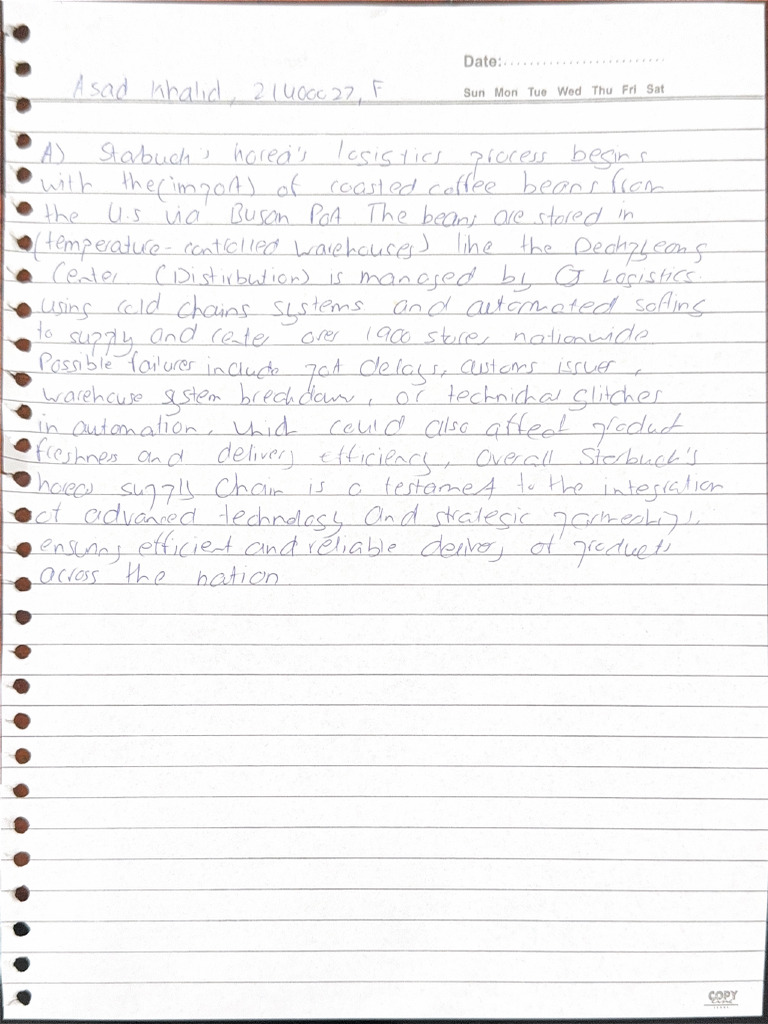 Date:
Asad Khalid, 21U00027, F
Sun Mon Tue Wed Thu Fri Sat
A) Starbuck's korea's logistics process begins
with the (import) of roasted coffee beans from
the U.S via Busan Port The beans are stored in
(temperature-controlled warehouses) like the
Center (Distirbution) is managed by CJ Logistics.
using cold chains systems and automated sorting
to supply and center over 1900 stores nationwide.
Possible failures include port delays, customs issues,
warehouse system breakdown, or technichal glitches
in automation, which could also affect product
freshness and delivery efficiency, overall Starbuck's
korea supply Chain is a testament to the integration
of advanced technology and strategic partnerships,
ensuring efficient and reliable delivery of products
across the nation
COPY